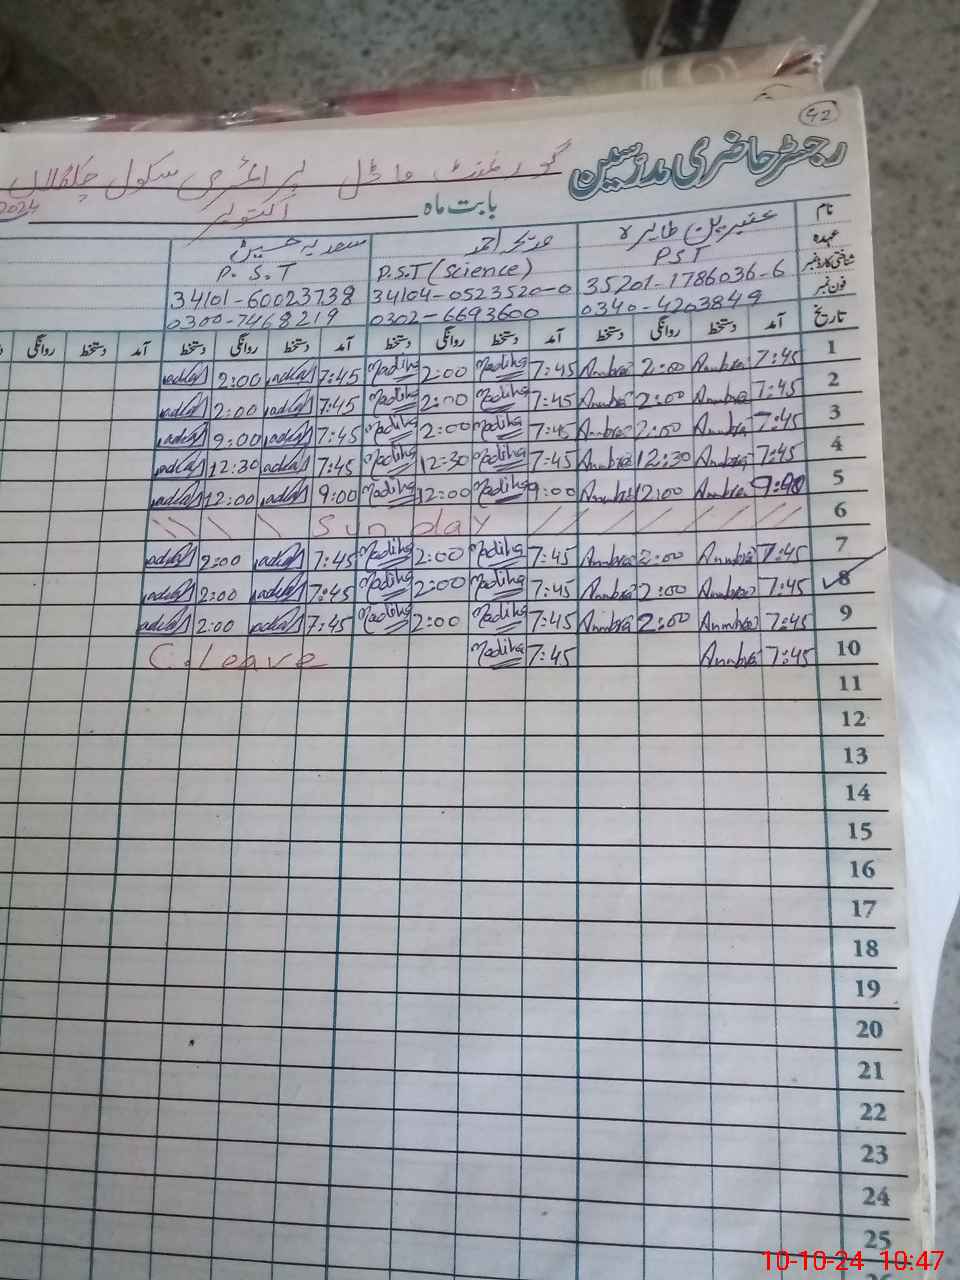 42
رجسٹر حاضری مدرسین
گورنمنٹ ماڈل پرائمری سکول
بابت ماہ اکتوبر 2024
نام عنبرین طاہرہ مدیحہ احمد سعدیہ حسین
عہدہ PST P.S.T (science) P.S.T
شناختی کارڈ نمبر 35201-1786036-6 34104-0523520-0 34101-60023738
فون نمبر 0340-4203849 0302-6693600 0300-7468219
تاریخ آمد دستخط روانگی دستخط آمد دستخط روانگی دستخط آمد دستخط روانگی دستخط آمد دستخط روانگی
1 7:45 Ambra 2:00 Ambra 7:45 Madiha 2:00 Madiha 7:45 2:00
2 7:45 Ambra 2:00 Ambra 7:45 Madiha 2:00 Madiha 7:45 2:00
3 7:45 Ambra 2:00 Ambra 7:45 Madiha 2:00 Madiha 7:45 2:00
4 7:45 Ambra 12:30 Ambra 7:45 Madiha 12:30 Madiha 7:45 12:30
5 9:00 Ambra 12:00 Ambra 9:00 Madiha 12:00 Madiha 9:00 12:00
6 Sunday
7 7:45 Ambra 2:00 Ambra 7:45 Madiha 2:00 Madiha 7:45 2:00
8 7:45 Ambra 2:00 Ambra 7:45 Madiha 2:00 Madiha 7:45 2:00
9 7:45 Ambra 2:00 Ambra 7:45 Madiha 2:00 Madiha 7:45 2:00
10 7:45 Ambra 7:45 Madiha C.Leave
11
12
13
14
15
16
17
18
19
20
21
22
23
24
25
10-10-24 10:47